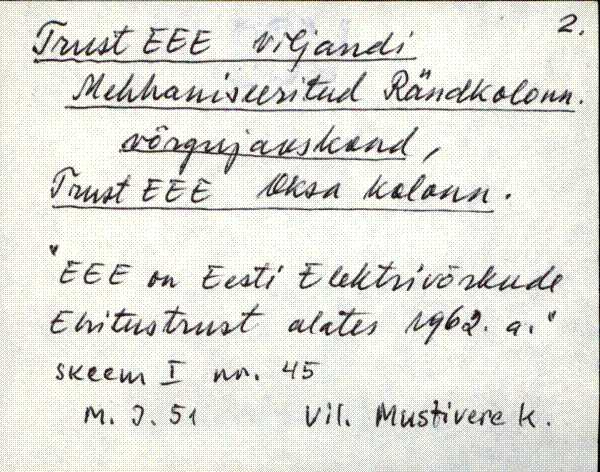 2.
Trust EEE Viljandi
Mehhaniseeritud Rändkolonn.
võrgujaoskond,
Trust EEE Oksa kolonn.
"EEE on Eesti Elektrivõrkude
Ehitustrust alates 1962. a."
skeem I nr. 45
M. J. 51 Vil. Mustivere k.